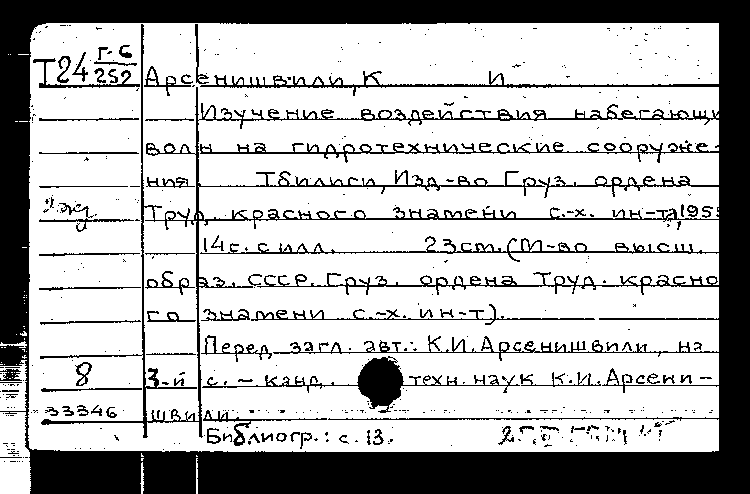 Т24 Г-6
252
Арсенишвили, К И
Изучение воздействия набегающи
волн на гидротехнические сооруже-
ния. Тбилиси, Изд-во Груз. ордена
Труд. красного знамени с.-х. ин-та, 1955
14с. с илл. 23см. (М-во высш.
образ. СССР. Груз. ордена Труд. красно
го знамени с.-х. ин-т).
Перед загл. авт.: К.И. Арсенишвили, на
8 3-й с. - канд. техн. наук К.И. Арсени-
33346 швили.
Библиогр.: с. 13.